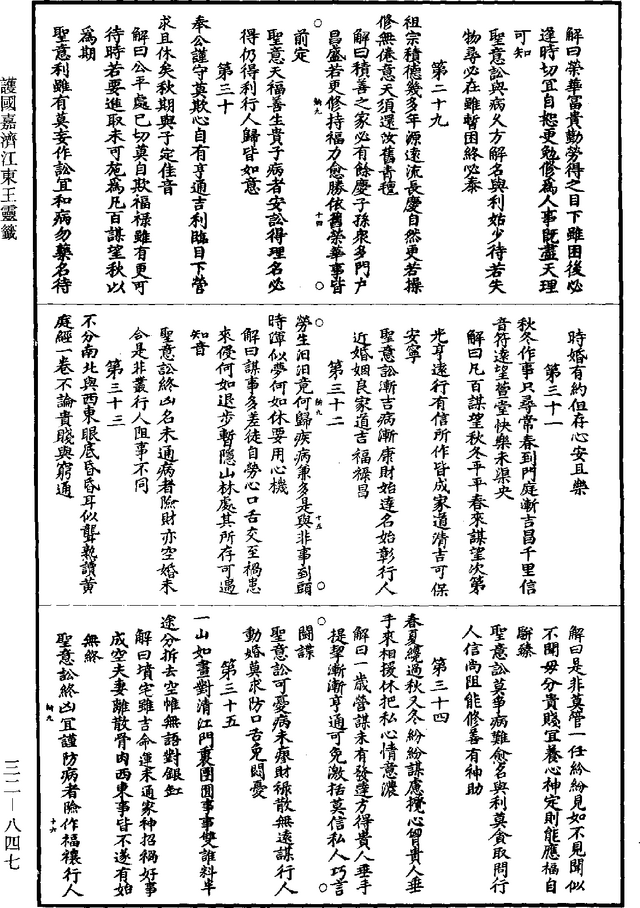 護國嘉濟江東王靈籤
三二—八四七
解曰榮華富貴勤勞得之目下雖困後必
逢時切宜自恕更勉修爲人事既盡天理
可知
聖意訟與病久方解名與利姑少待若失
物尋必在雖暫困終必泰
第二十九
祖宗積德幾多年源遠流長慶自然更若操
修無倦意天須還汝舊青氊
解曰積善之家必有餘慶子孫衆多門户
昌盛若更修持福力愈勝依舊榮華事皆
前定
聖意天福善生貴子病者安訟得理名必
得仍得利行人歸皆如意
第三十
奉公謹守莫欺心自有亨通吉利臨目下營
求且休矣秋期與子定佳音
解曰公平處已切莫自欺福祿雖有更可
待時若要進取未可施爲凡百謀望秋以
爲期
聖意利雖有莫妄作訟宜和病勿藥名待
時婚有約但存心安且樂
第三十一
秋冬作事只尋常春到門庭漸吉昌千里信
音符遠望萱堂快樂未渠央
解曰凡百謀望秋冬平平春來謀望次第
光亨遠行有信所作皆成家道清吉可保
安寧
聖意訟漸吉病漸康財始達名始彰行人
近婚姻良家道吉福祿昌
第三十二
勞生汩汩竟何歸疾病兼多是與非事到頭
時渾似夢何如休要用心機
解曰謀事多差徒自勞心口舌交至禍患
來侵何如退步暫隱山林處其所存可遇
知音
聖意訟終凶名未通病者險財亦空婚未
合是非叢行人阻事不同
第三十三
不分南北與西東眼底昏昏耳似聾熟讀黄
庭經一卷不論貴賤與窮通
解曰是非莫管一任紛紛見如不見聞似
不聞毋分貴賤宜養心神定則能應福自
駢臻
聖意訟莫爭病難愈名與利莫貪取問行
人信尚阻能修善有神助
第三十四
春夏纔過秋又冬紛紛謀慮攪心胷貴人垂
手來相援休把私心情意濃
解曰一歲營謀未有發達方得貴人垂手
提挈漸漸亨通可免激括莫信私人巧言
鬭諜
聖意訟可憂病未瘳財祿散無遠謀行人
動婚莫求防口舌免悶憂
第三十五
一山如畫對清江門裏團圓事事雙誰料半
途分拆去空帷無語對銀缸
解曰墳宅雖吉命運未通家神招禍好事
成空夫妻離散骨肉西東事皆不遂有始
無終
聖意訟終凶宜謹防病者險作福禳行人